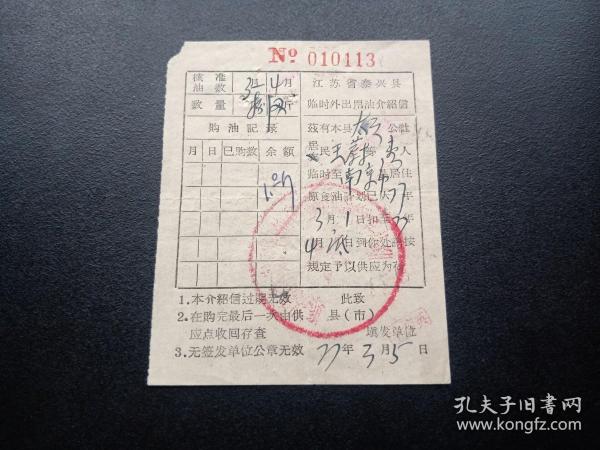 № 010113
核准油数 3月4月
数量 斤
购油记录
月 日 已购数 余额
江苏省泰兴县
临时外出用油介紹信
茲有本县 公社
居民 王 等 人
临时至南京市 居住
原食油计划已从77年
3月1日扣至77年
4月底日到你处請按
規定予以供应为荷
此致
县(市)
填发单位
1.本介紹信过期无效
2.在购完最后一次由供
应点收回存查
3.无签发单位公章无效
77年3月5日
孔夫子旧书网
www.kongfz.com